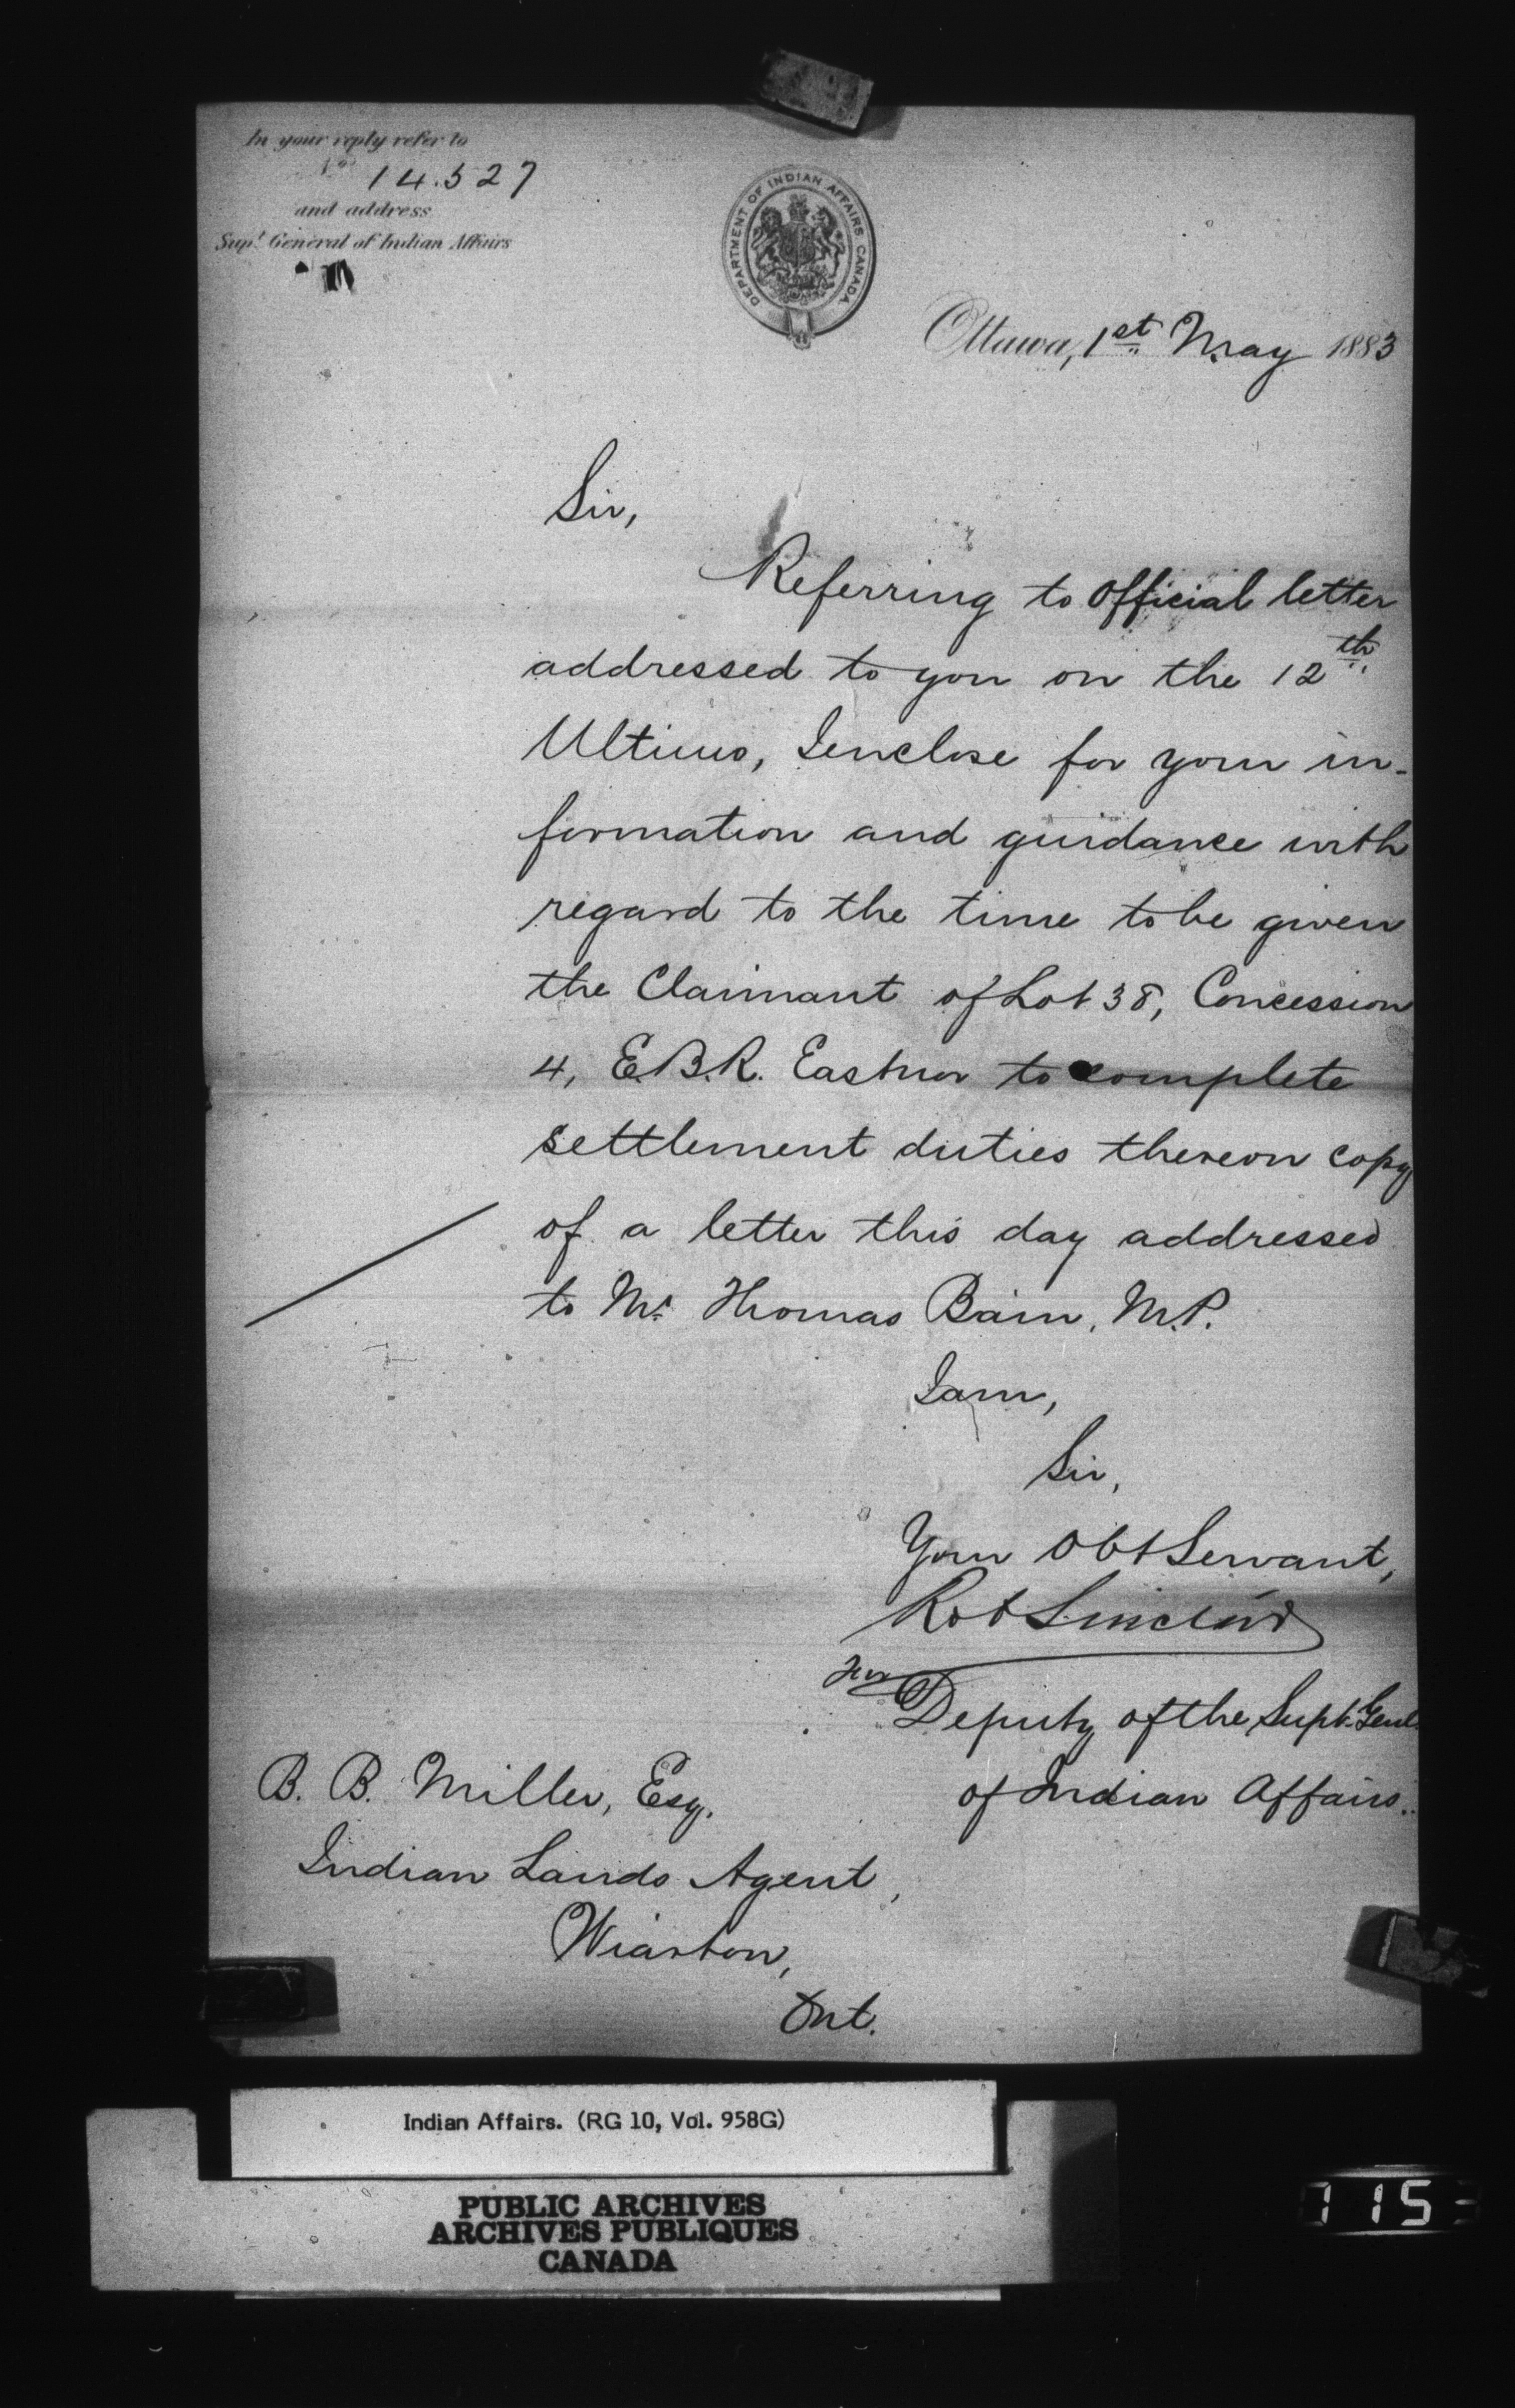 In your reply refer to
No 14.527
and address
Supt. General of Indian Affairs
DEPARTMENT OF INDIAN AFFAIRS CANADA
Ottawa, 1st May 1883
Sir,
Referring to Official letter
addressed to you on the 12th
Ultimo, I enclose for your in-
formation and guidance with
regard to the time to be given
the Claimant of Lot 38, Concession
4, E.B.R. Eastnor to complete
settlement duties thereon copy
of a letter this day addressed
to Mr. Thomas Bain, M.P.
I am,
Sir,
Your Obt Servant,
Robt Sinclair
for
Deputy of the Supt. Genl.
of Indian Affairs.
B. B. Miller, Esq.
Indian Lands Agent,
Wiarton,
Ont.
Indian Affairs. (RG 10, Vol. 958G)
PUBLIC ARCHIVES
ARCHIVES PUBLIQUES
CANADA
115